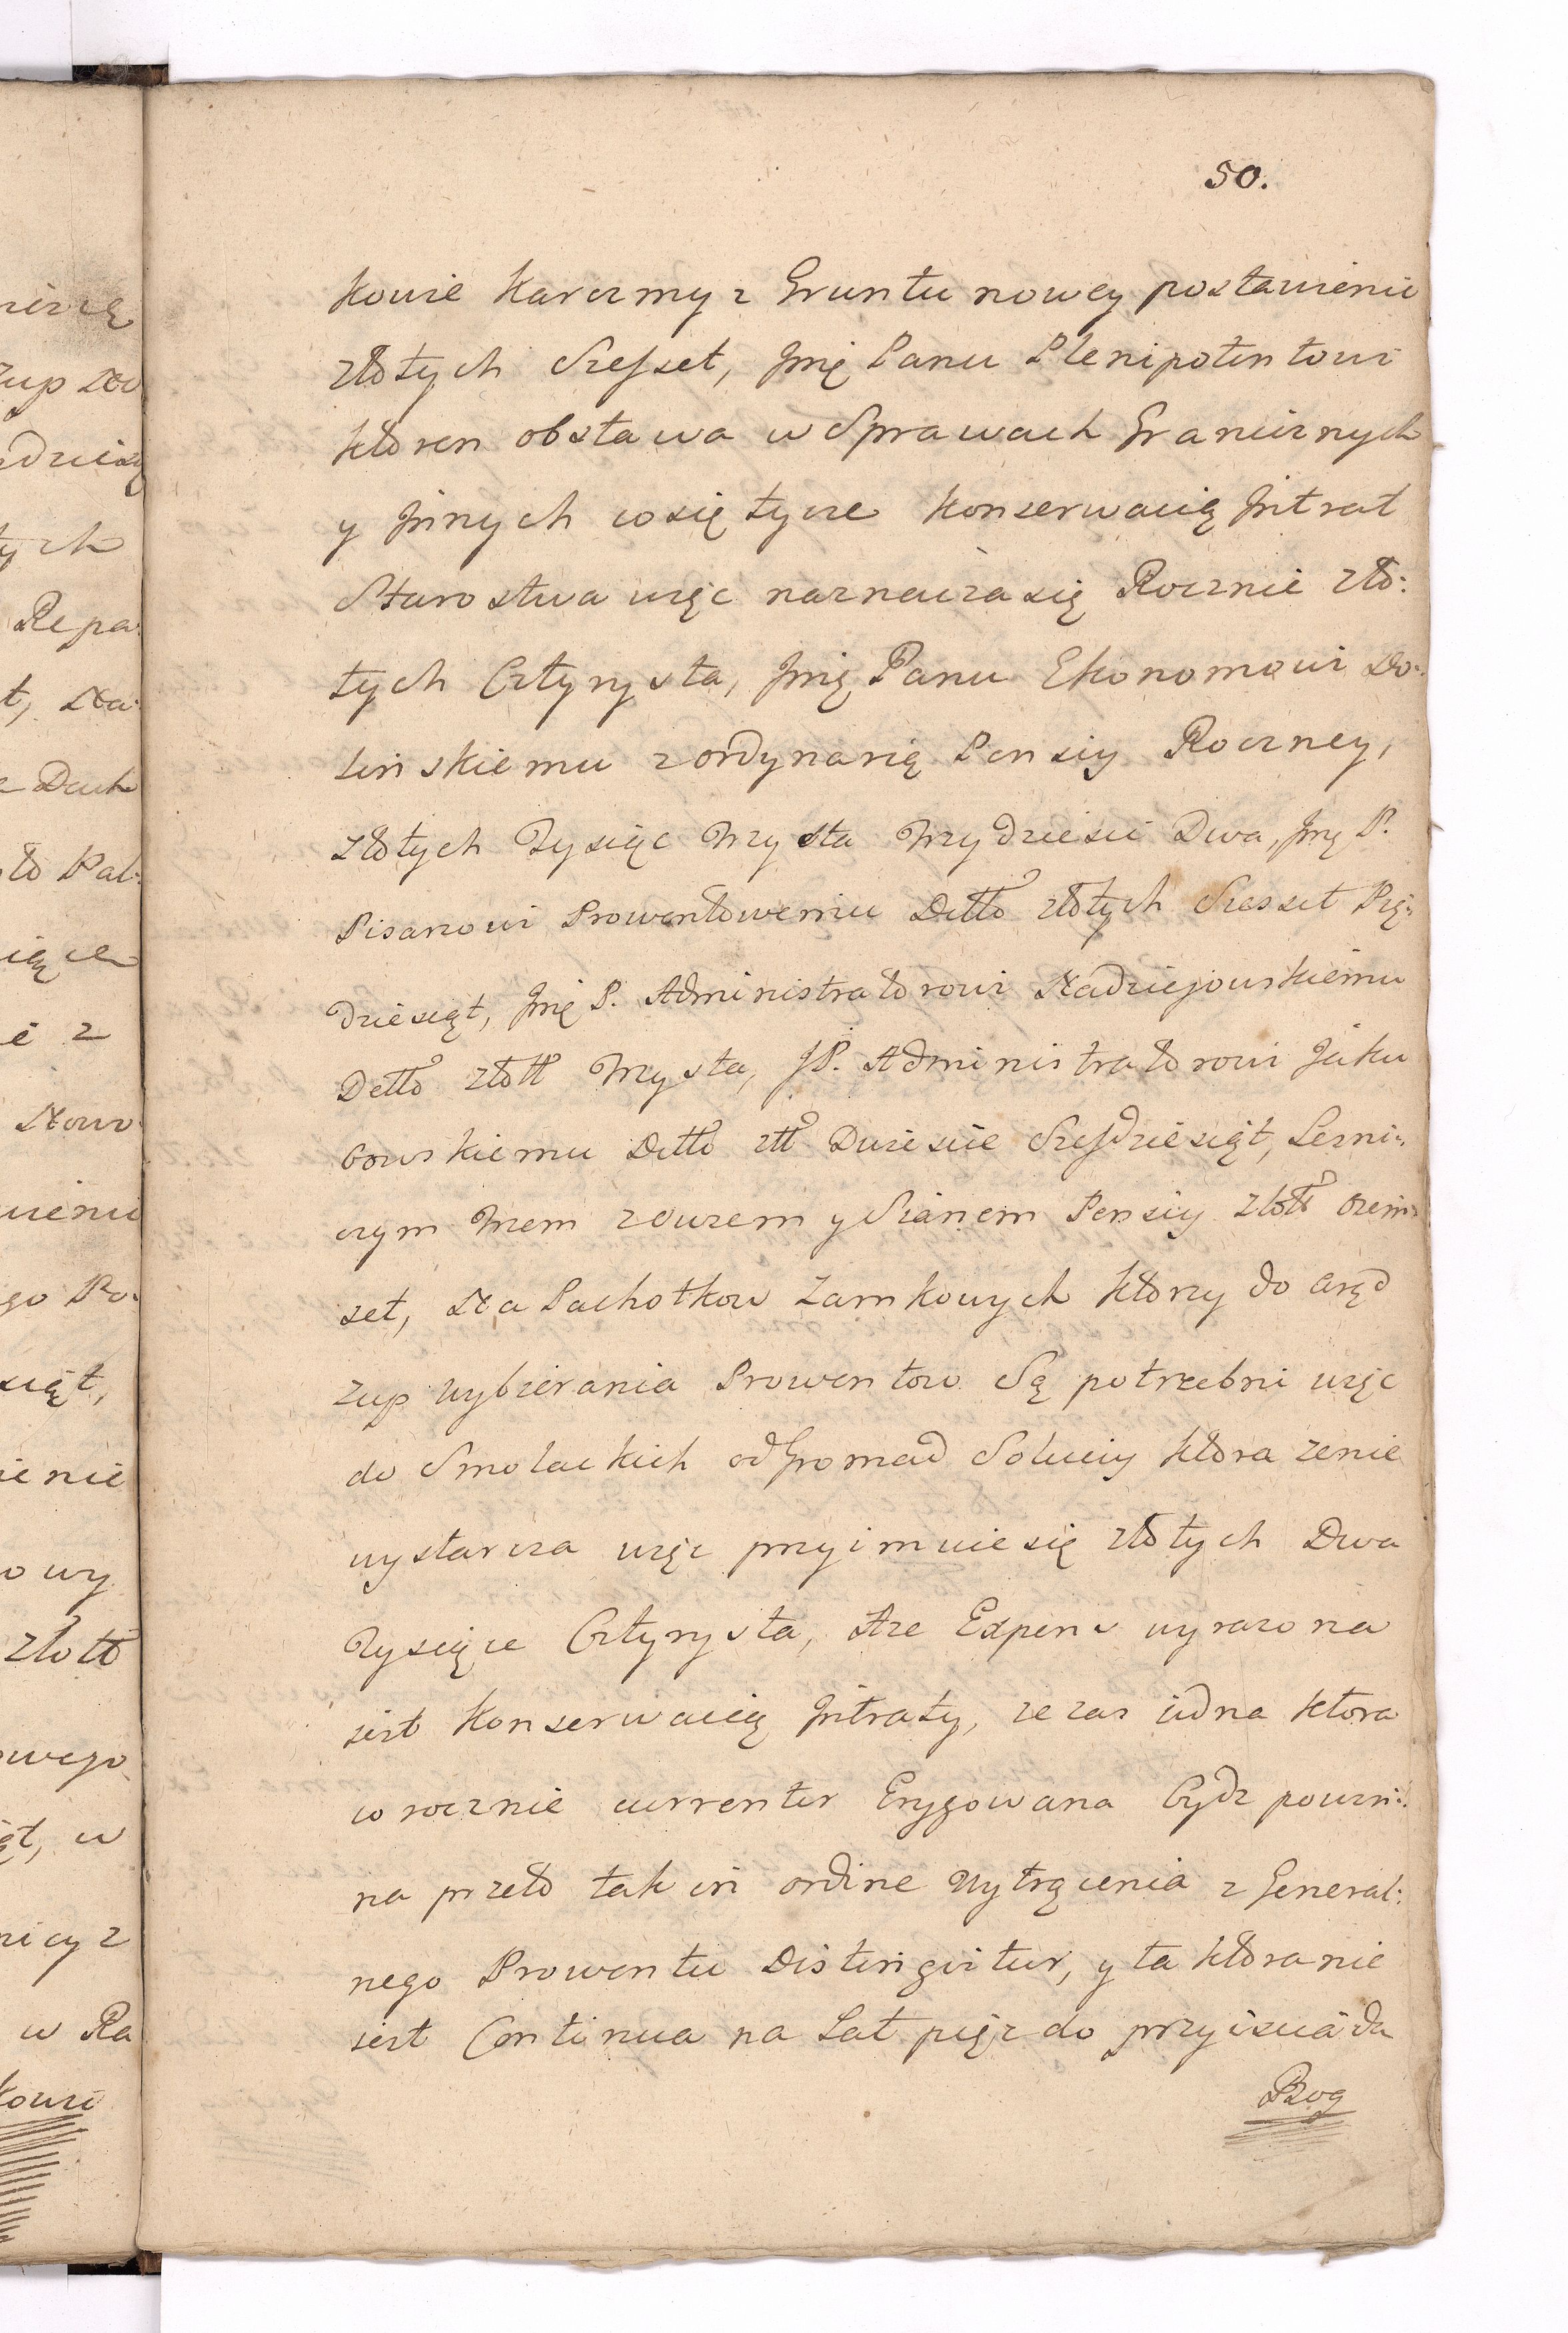 50.
kowie Karczmy z Gruntu nowey postawieniu
złotych Szesset, Jmę Panu Plenipotentowi
ktoren obstawa w Sprawach Granicznych
y Jnnych co się tycze Konserwacią Jntrat
Starostwa więc naznacza się Rocznie zło:
tych Cztyrysta, Jmę Panu Ekonomowi Do:
linskiemu z ordynarią Pensiy Roczney,
złotych Tysięc Trzysta Trzydziesci Dwa, Jmę P.
Pisarzowi Prowentowemu Detto złotych Szesset Pię:
dziesiąt, Jmę P. Administratorowi Nadziejowskiemu
Detto złott Trzysta, JP. Administratorowi Jaku
bowskiemu Detto złt Dwiescie Szesdziesiąt, Lesni:
czym Trzem z owsem y Sianem Pensiy złott osim:
set, Na Pachołkow Zamkowych ktorzy do aręd
zup wybierania Prowentow Są potrzebni więc
do Smolackich od Gromad Soluciy ktora ze nie
wystarcza więc przyimuie się złotych Dwa
Tysiące Cztyrysta, Aże Expens wyrazona
jest Konserwacią Jntraty, ze zas iedna ktora
co rocznie currenter Erygowana bydz powin:
na przeto tak in ordine Wytrącenia z General:
nego Prowentu Distingvitur, y ta ktora nie
jest Continua na Lat pięc do przyiscia da
Bog